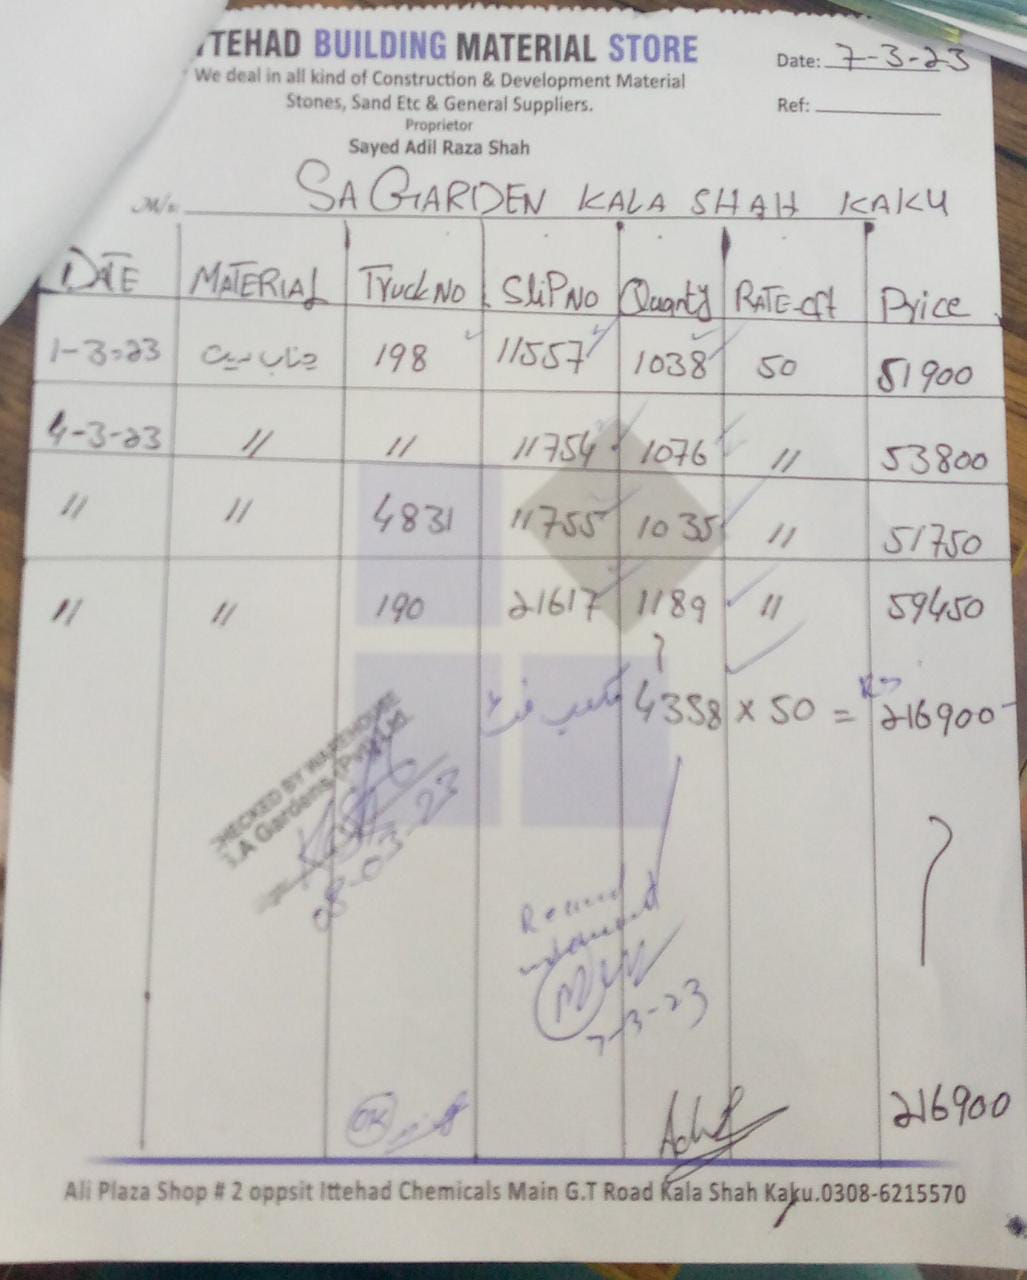 ITTEHAD BUILDING MATERIAL STORE
We deal in all kind of Construction & Development Material
Stones, Sand Etc & General Suppliers.
Proprietor
Sayed Adil Raza Shah
Date: 7-3-23
Ref:
M/s. SA GARDEN KALA SHAH KAKU
DATE MATERIAL Truck No Slip No Quanty RATE-cft Price
1-3-23 چناب ریت 198 11557 1038 50 51900
4-3-23 // // 11754 1076 // 53800
// // 4831 11755 1035 // 51750
// // 190 21617 1189 // 59450
مکعب فٹ 4358 x 50 = Rs 216900
CHECKED BY WAREHOUSE
S.A Gardens (Pvt) Ltd.
08-03-23
7-3-23
OK
Adil
216900
Ali Plaza Shop # 2 oppsit Ittehad Chemicals Main G.T Road Kala Shah Kaku.0308-6215570